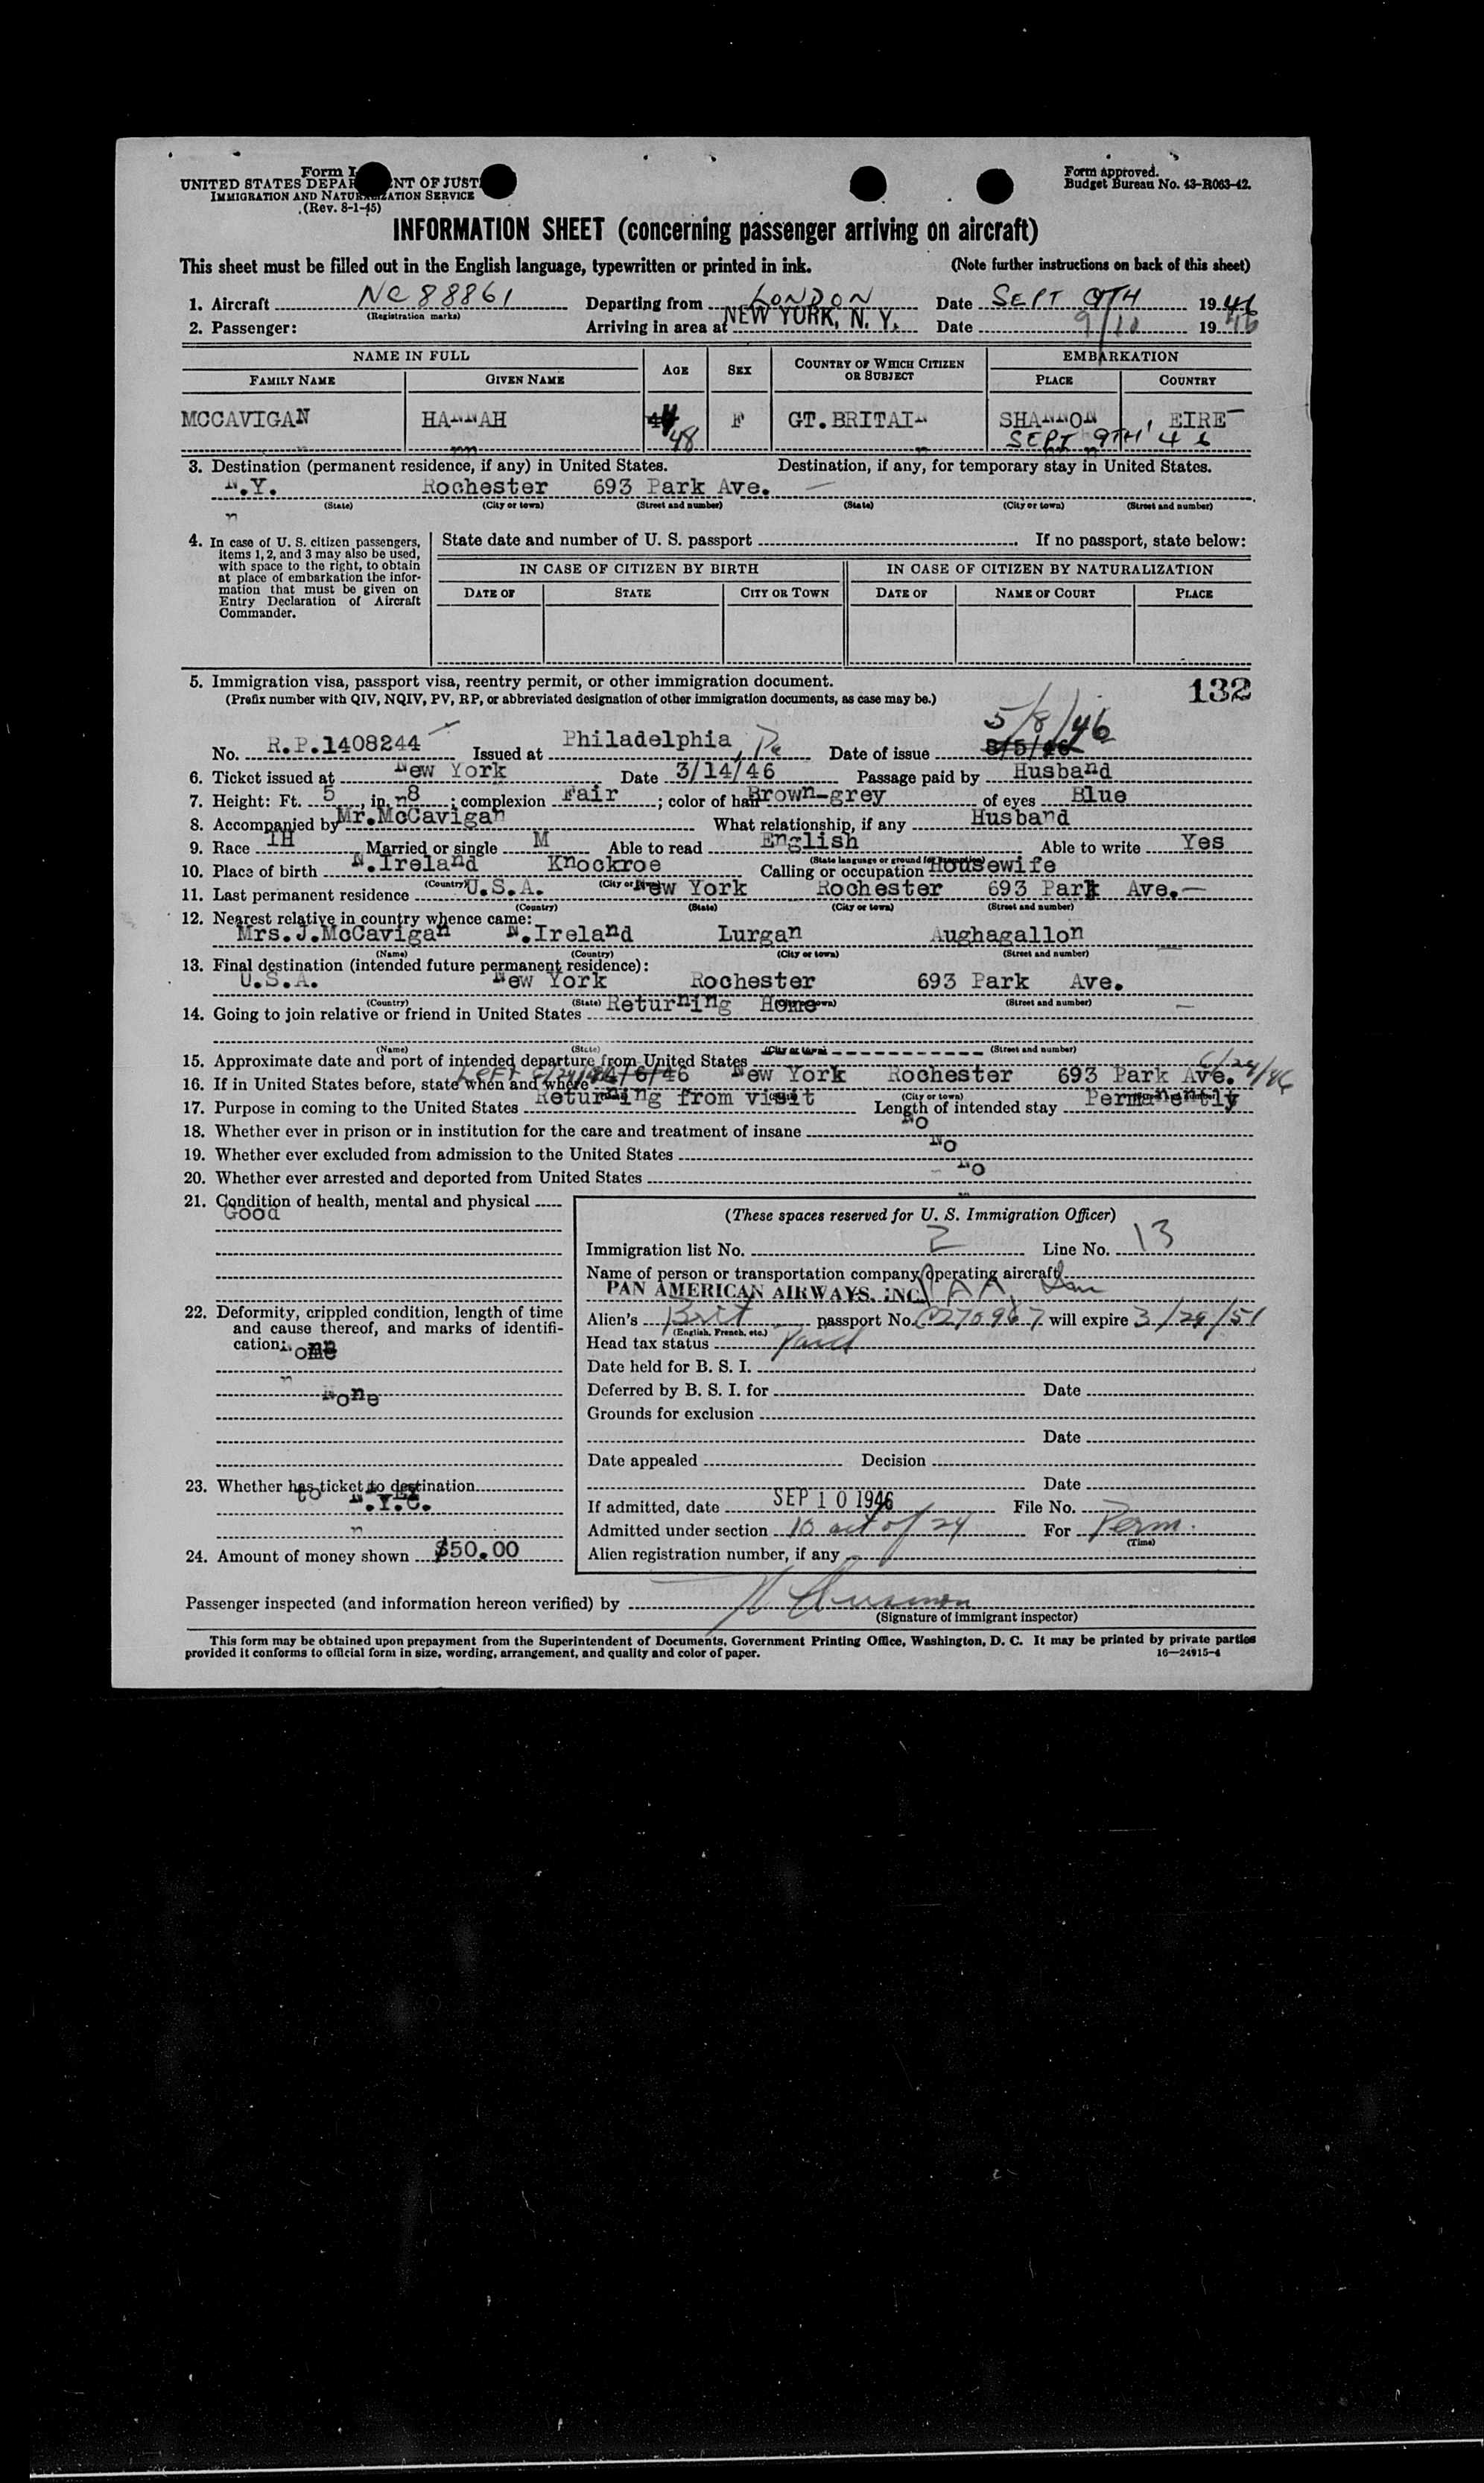 Form I
UNITED STATES DEPAR NT OF JUST
IMMIGRATION AND NATURALIZATION SERVICE
(Rev. 8-1-45)
Form approved.
Budget Bureau No. 43-R063-42.
INFORMATION SHEET (concerning passenger arriving on aircraft)
This sheet must be filled out in the English language, typewritten or printed in ink. (Note further instructions on back of this sheet)
1. Aircraft NC 88861 Departing from LONDON Date SEPT 9TH 1946
(Registration marks)
2. Passenger: Arriving in area at NEW YORK, N. Y. Date 9/10 1946
NAME IN FULL AGE SEX COUNTRY OF WHICH CITIZEN OR SUBJECT EMBARKATION
FAMILY NAME GIVEN NAME PLACE COUNTRY
MCCAVIGAN HANNAH 48 F GT.BRITAIN SHANNON EIRE
SEPT 9TH '46
3. Destination (permanent residence, if any) in United States. Destination, if any, for temporary stay in United States.
N.Y. Rochester 693 Park Ave. —
(State) (City or town) (Street and number) (State) (City or town) (Street and number)
4. In case of U. S. citizen passengers, items 1, 2, and 3 may also be used, with space to the right, to obtain at place of embarkation the information that must be given on Entry Declaration of Aircraft Commander.
State date and number of U. S. passport If no passport, state below:
IN CASE OF CITIZEN BY BIRTH IN CASE OF CITIZEN BY NATURALIZATION
DATE OF STATE CITY OR TOWN DATE OF NAME OF COURT PLACE
5. Immigration visa, passport visa, reentry permit, or other immigration document.
(Prefix number with QIV, NQIV, PV, RP, or abbreviated designation of other immigration documents, as case may be.)
132
5/8/46
No. R.P.1408244 Issued at Philadelphia, Pa Date of issue 8/5/46
6. Ticket issued at New York Date 3/14/46 Passage paid by Husband
7. Height: Ft. 5, in. 8; complexion Fair; color of hair Brown-grey of eyes Blue
8. Accompanied by Mr.McCavigan What relationship, if any Husband
9. Race IH Married or single M Able to read English Able to write Yes
(State language or ground for exemption)
10. Place of birth N.Ireland Knockroe Calling or occupation Housewife
(Country) (City or town)
11. Last permanent residence U.S.A. New York Rochester 693 Park Ave.—
(Country) (State) (City or town) (Street and number)
12. Nearest relative in country whence came:
Mrs.J.McCavigan N.Ireland Lurgan Aughagallon
(Name) (Country) (City or town) (Street and number)
13. Final destination (intended future permanent residence):
U.S.A. New York Rochester 693 Park Ave.
(Country) (State) (City or town) (Street and number)
14. Going to join relative or friend in United States Returning Home
(Name) (State) (City or town) (Street and number)
15. Approximate date and port of intended departure from United States
16. If in United States before, state when and where LEFT 6/6/46 New York Rochester 693 Park Ave. 6/24/46
(City or town)
17. Purpose in coming to the United States Returning from visit Length of intended stay Permanently
18. Whether ever in prison or in institution for the care and treatment of insane No
19. Whether ever excluded from admission to the United States No
20. Whether ever arrested and deported from United States No
21. Condition of health, mental and physical
Good
22. Deformity, crippled condition, length of time and cause thereof, and marks of identification:
None
23. Whether has ticket to destination
to N.Y.C.
24. Amount of money shown $50.00
(These spaces reserved for U. S. Immigration Officer)
Immigration list No. 2 Line No. 13
Name of person or transportation company operating aircraft
PAN AMERICAN AIRWAYS, INC. PAA
Alien's Brit passport No. C270967 will expire 3/29/51
(English, French, etc.)
Head tax status Paid
Date held for B. S. I.
Deferred by B. S. I. for Date
Grounds for exclusion
Date
Date appealed Decision
Date
If admitted, date SEP 10 1946 File No.
Admitted under section 10 act of 24 For Perm.
(Time)
Alien registration number, if any
Passenger inspected (and information hereon verified) by
(Signature of immigrant inspector)
This form may be obtained upon prepayment from the Superintendent of Documents, Government Printing Office, Washington, D. C. It may be printed by private parties
provided it conforms to official form in size, wording, arrangement, and quality and color of paper. 16—24915-4